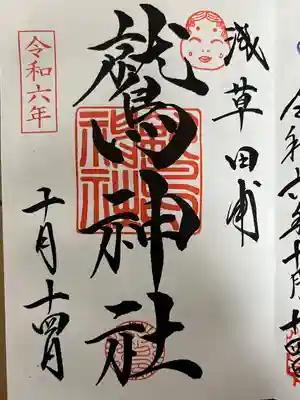 浅草田甫
鷲神社
令和六年
十月十四日
令和六年十月十四日